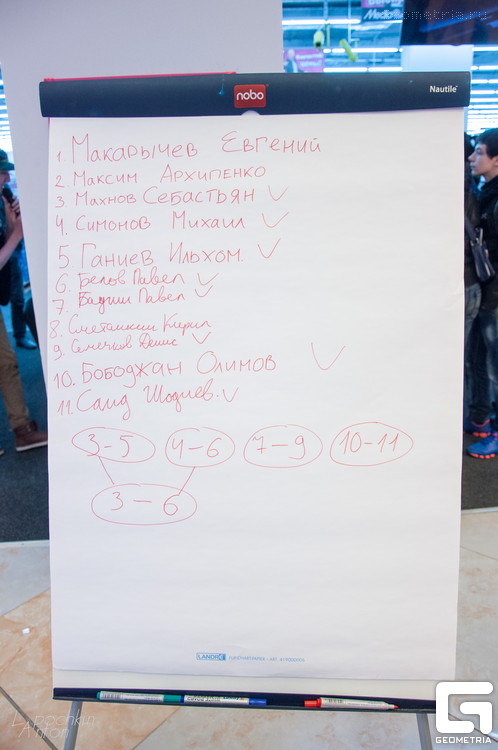 geometria.ru
Media
nobo
Nautile
1. Макарычев Евгений
2 Максим Архипенко
3 Махнов Себастьян ✓
4. Симонов Михаил ✓
5. Ганиев Ильхом. ✓
6. Белов Павел ✓
7. Павел ✓
8. Сметанкин Кирил
9. Семечков Денис ✓
10. Бободжан Олимов ✓
11. Саид Шодиев. ✓
3-5 4-6 7-9 10-11
3-6
LANDRE
Anton
G
GEOMETRIA